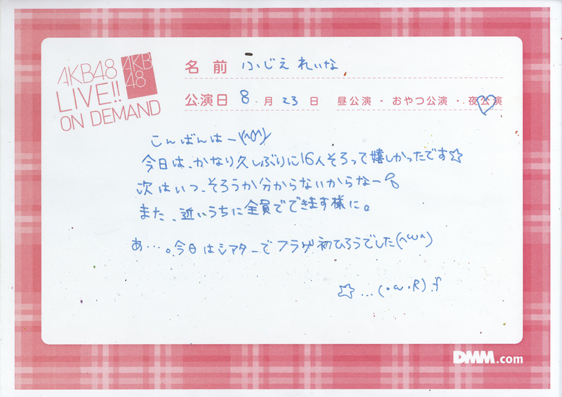 AKB48
LIVE!!
ON DEMAND
AKB
48
名前 ふじえ れいな
公演日 8 月 23 日 昼公演・おやつ公演・夜公演
こんばんはー(^o^)/
今日は、かなり久しぶりに16人そろって嬉しかったです☆
次はいつ、そろうか分からないからなー
また、近いうちに全員でできます様に。
あ…。今日はシアターでフラゲ初ひろうでした(^ω^)
☆…(・ω・R).f
DMM.com